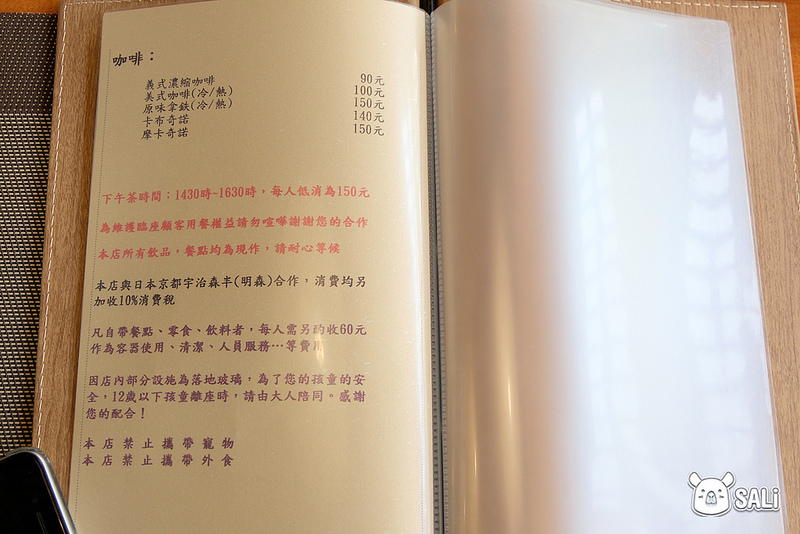 咖啡：
義式濃縮咖啡 90元
美式咖啡(冷/熱) 100元
原味拿鐵(冷/熱) 150元
卡布奇諾 140元
摩卡奇諾 150元
下午茶時間：1430時~1630時，每人低消為150元
為維護臨座顧客用餐權益請勿喧嘩謝謝您的合作
本店所有飲品，餐點均為現作，請耐心等候
本店與日本京都宇治森半(明森)合作，消費均另
加收10%消費稅
凡自帶餐點、零食、飲料者，每人需另酌收60元
作為容器使用、清潔、人員服務…等費用
因店內部分設施為落地玻璃，為了您的孩童的安
全，12歲以下孩童離座時，請由大人陪同。感謝
您的配合！
本店禁止攜帶寵物
本店禁止攜帶外食
SALi